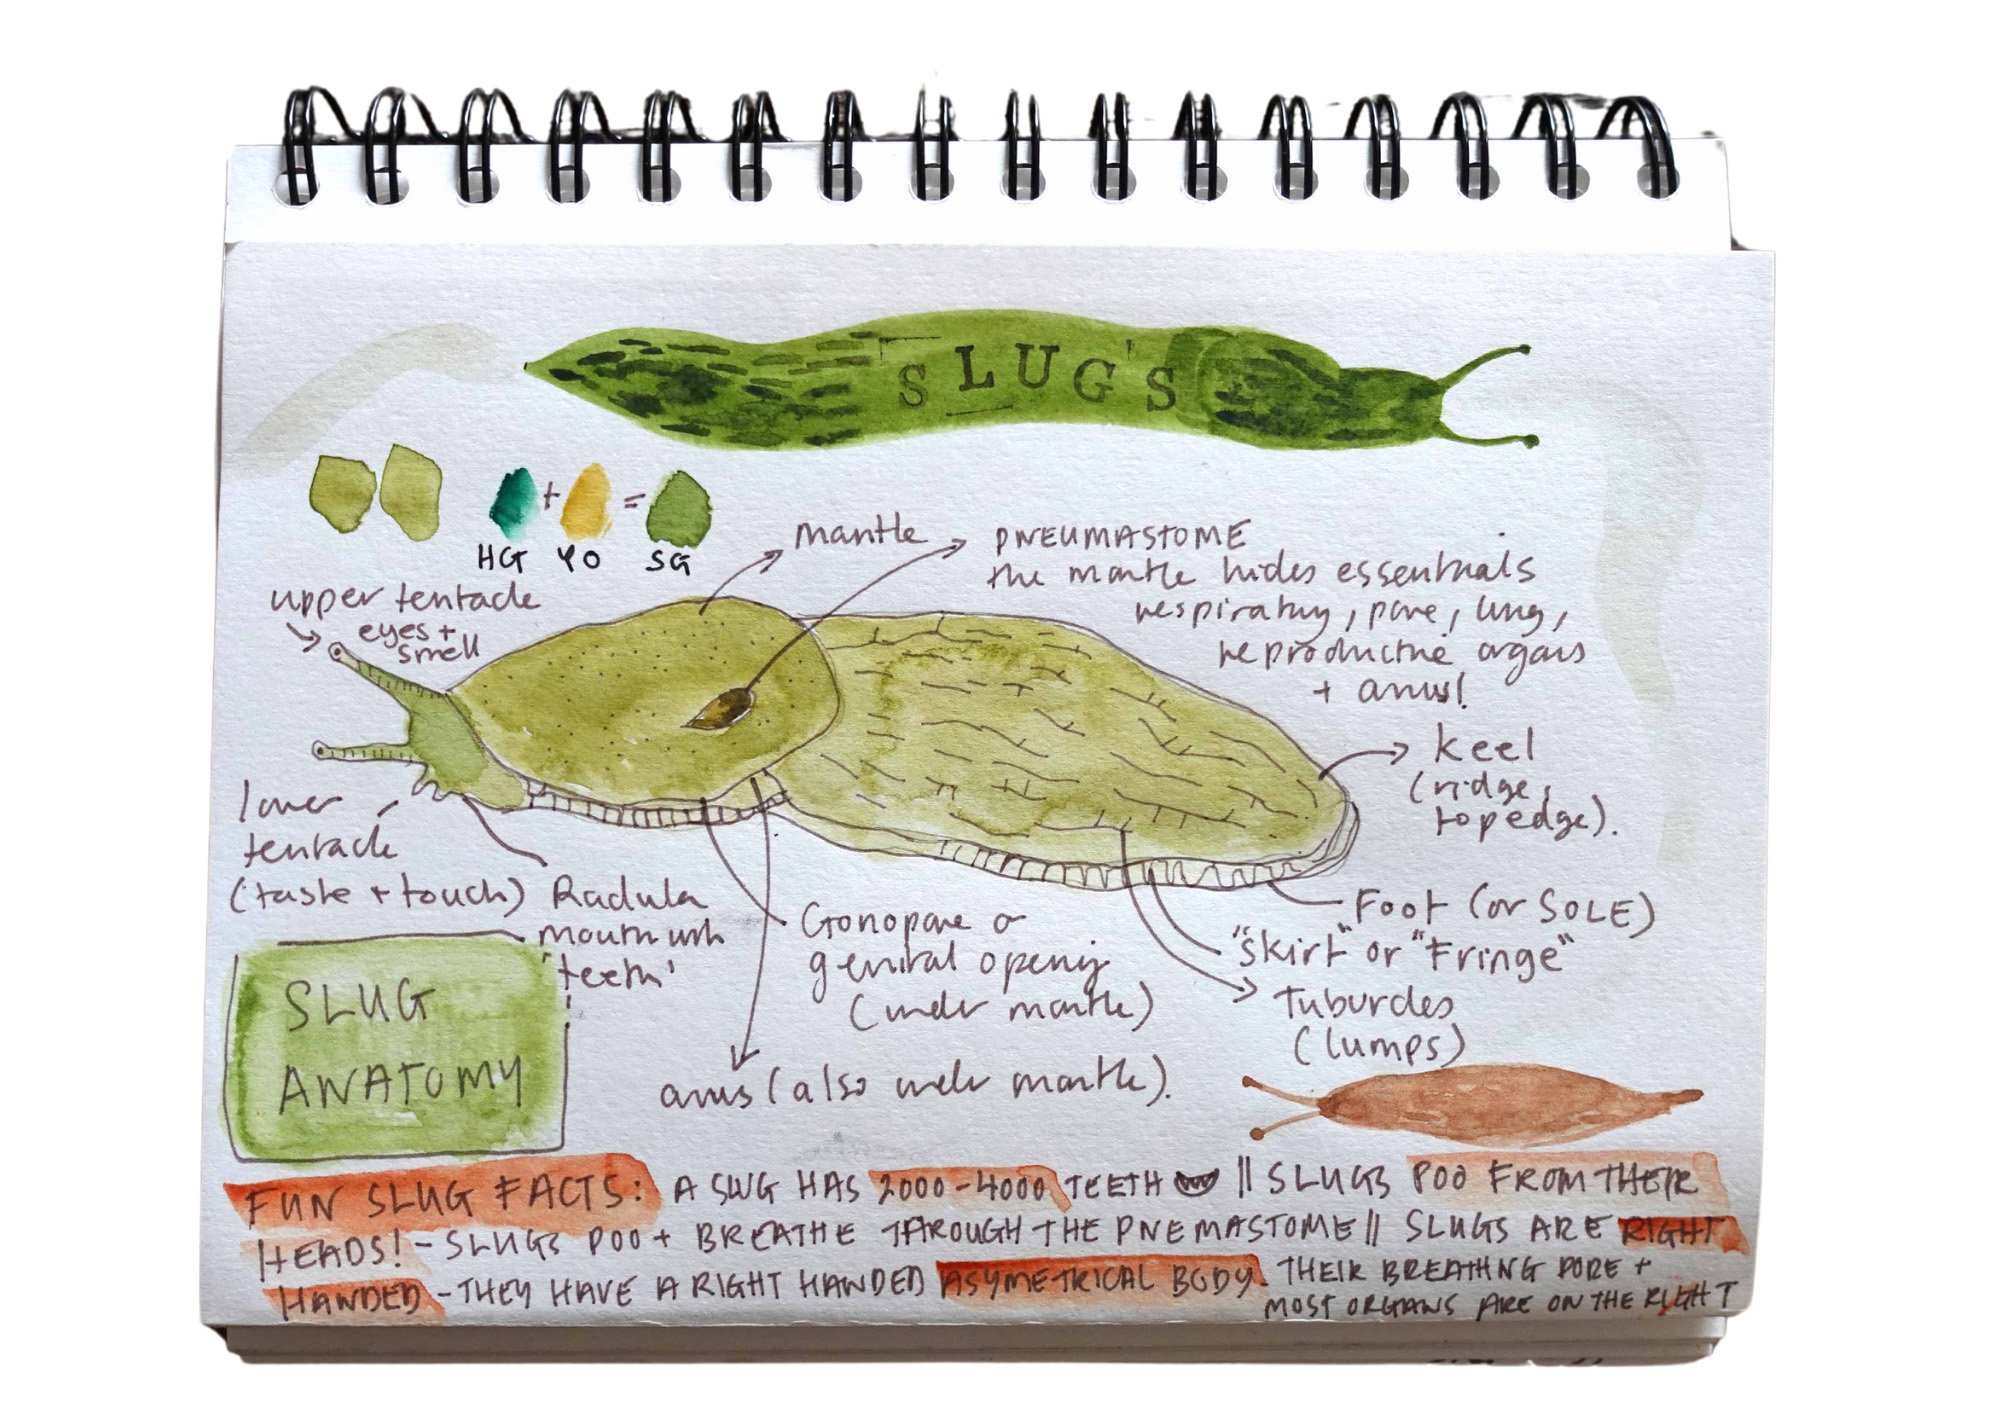 SLUGS
HG + YO = SG
upper tentacle
eyes +
smell
mantle
PNEUMASTOME
the mantle hides essentials
respiratory, pore, lung,
reproductive organs
+ anus!
keel
(ridge,
top edge).
lower
tentacle
(taste + touch)
Radula
mouth with
'teeth'
Gonopore or
genital opening
(under mantle)
anus (also under mantle).
Foot (or SOLE)
"skirt" or "Fringe"
Tuburcles
(lumps)
SLUG
ANATOMY
FUN SLUG FACTS: A SLUG HAS 2000-4000 TEETH || SLUGS POO FROM THEIR
HEADS! - SLUGS POO + BREATHE THROUGH THE PNEMASTOME || SLUGS ARE RIGHT
HANDED - THEY HAVE A RIGHT HANDED ASYMETRICAL BODY - THEIR BREATHING PORE +
MOST ORGANS ARE ON THE RIGHT